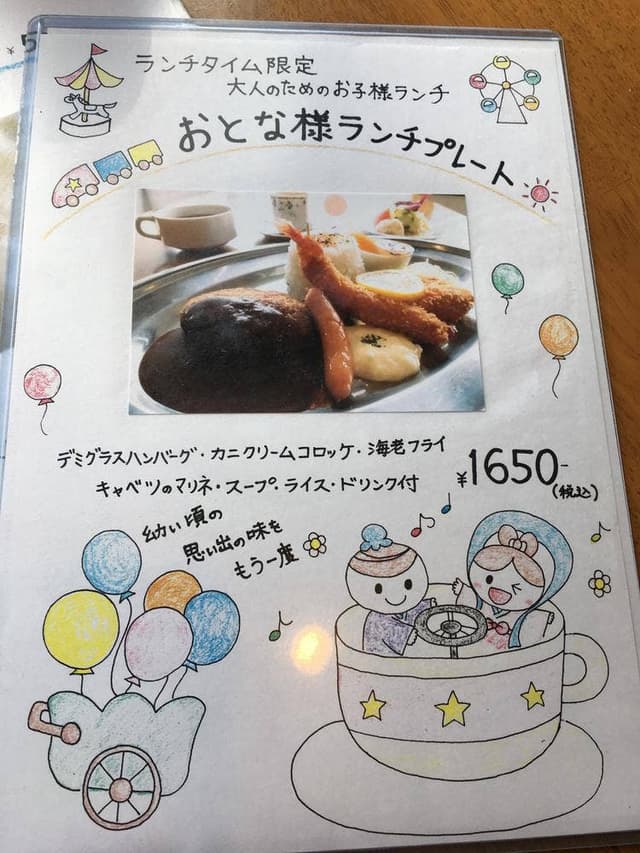 ランチタイム限定
大人のためのお子様ランチ
おとな様ランチプレート
デミグラスハンバーグ・カニクリームコロッケ・海老フライ
キャベツのマリネ・スープ・ライス・ドリンク付
¥1650-
(税込)
幼い頃の
思い出の味を
もう一度